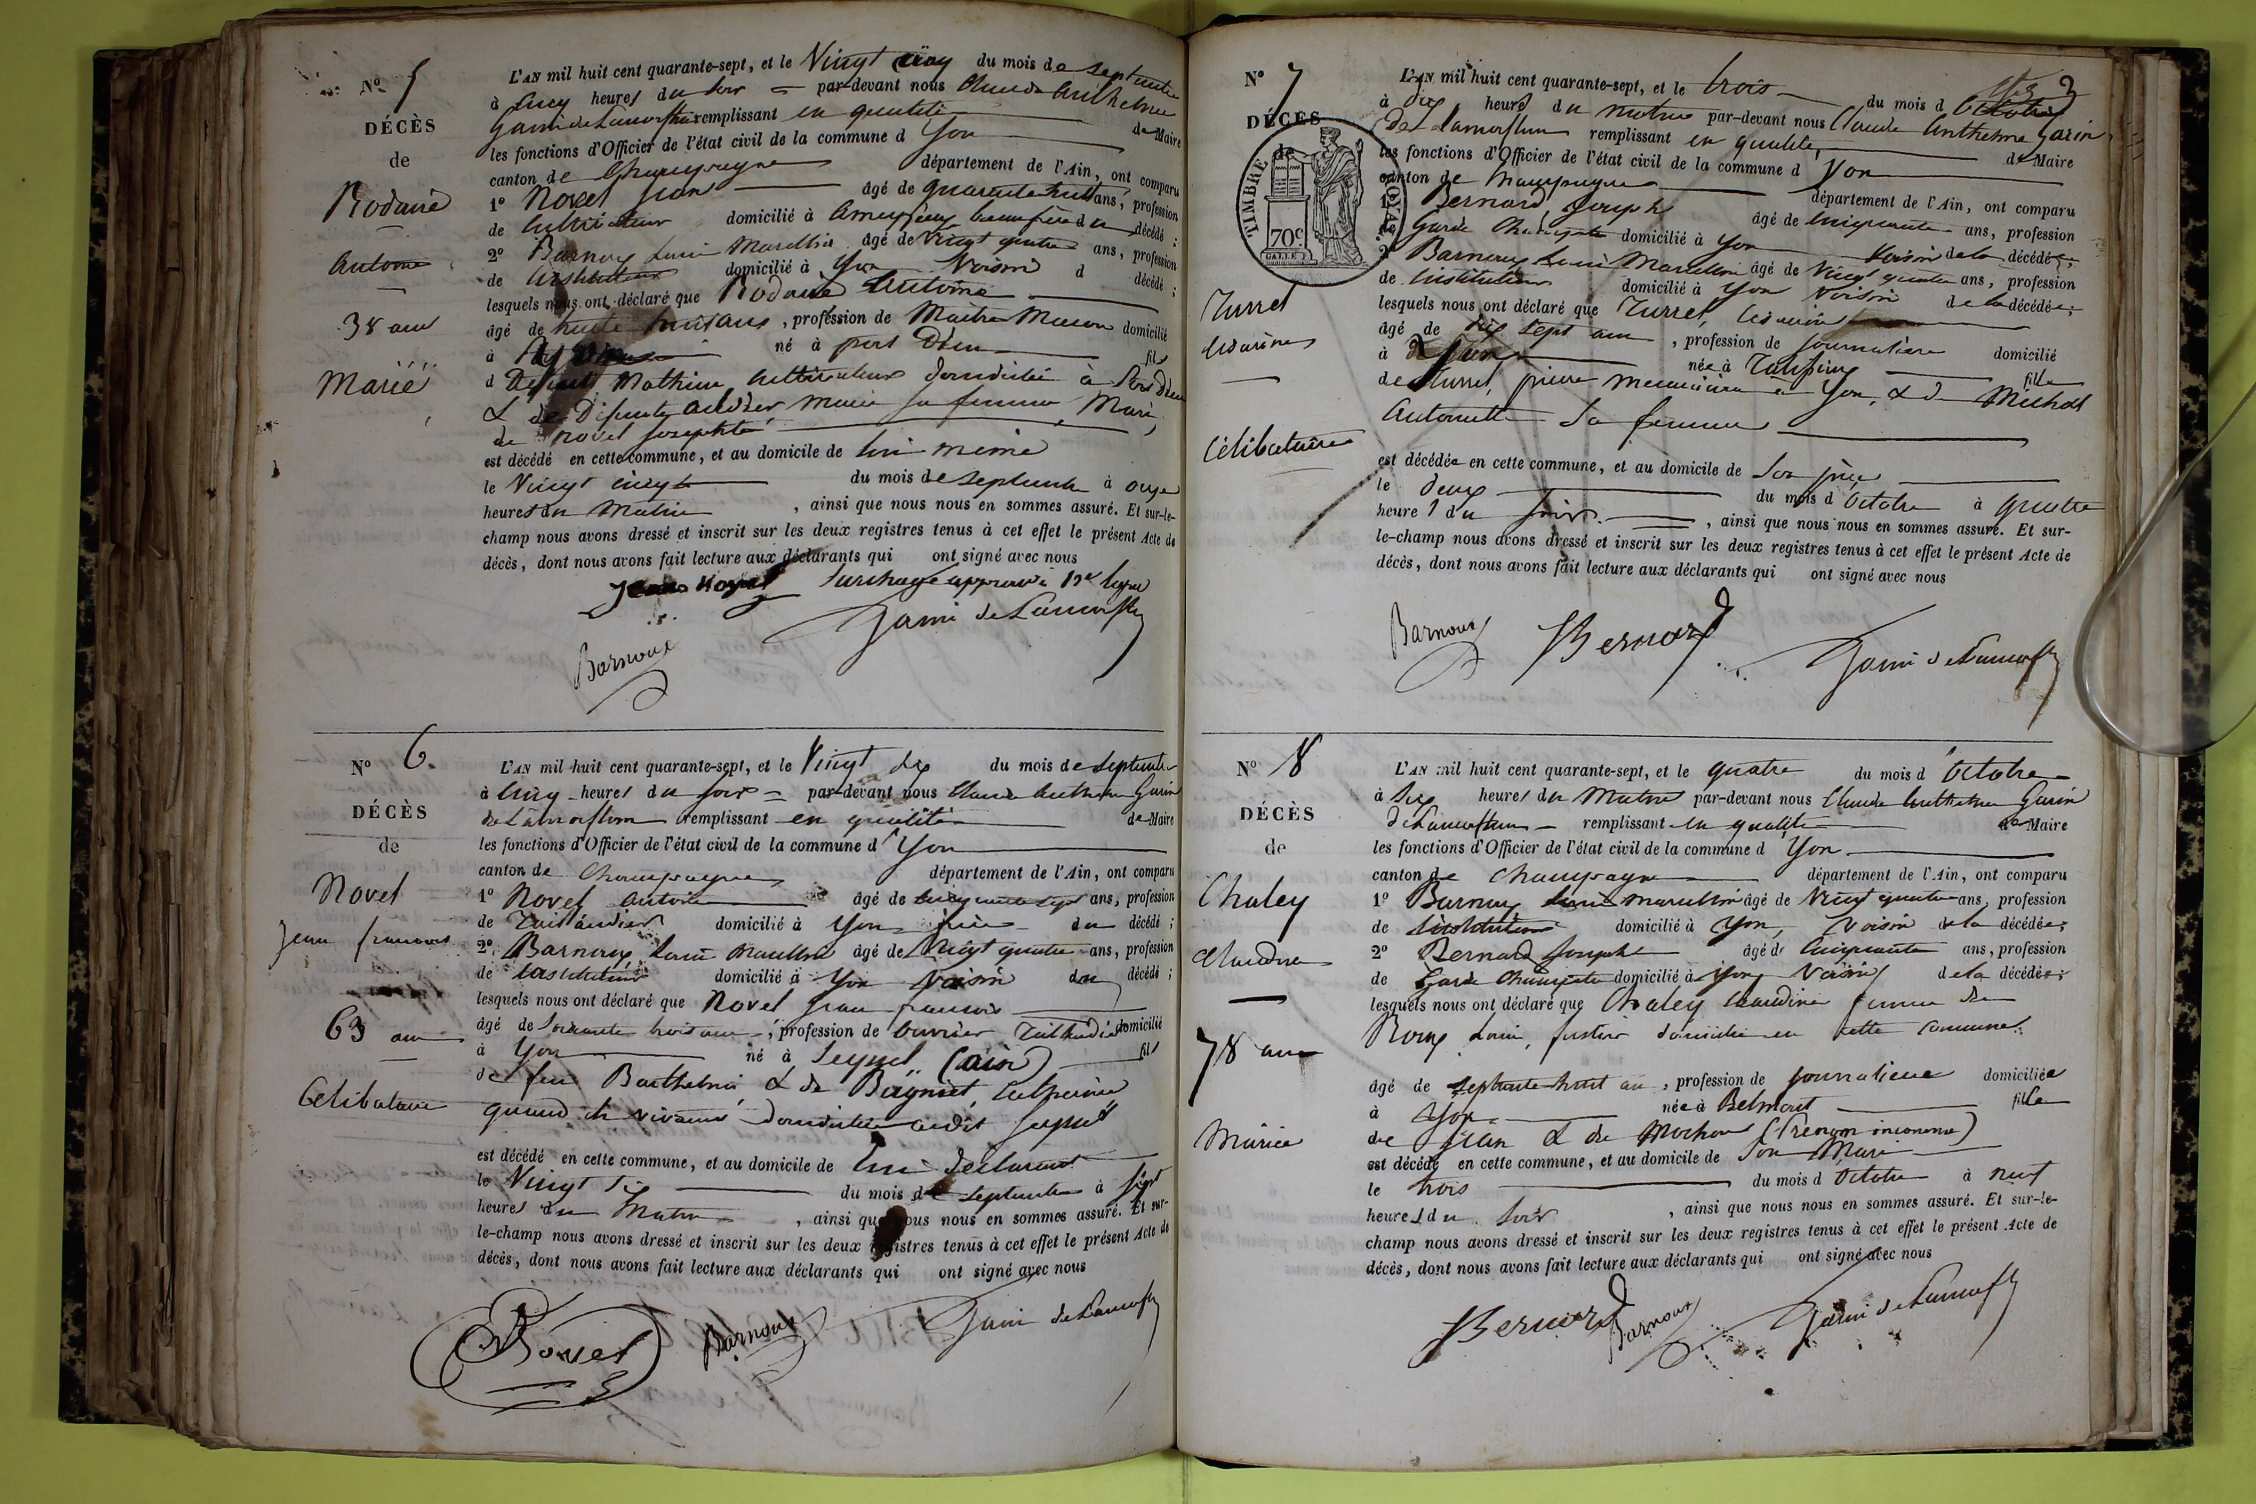 Nº 5
DÉCÈS
de
Rodaire
Antoine
38 ans
Marié
L'AN mil huit cent quarante-sept, et le Vingt cinq du mois de septembre
à cinq heures du soir par-devant nous Claude Anthelme
Garin de Lamorflan remplissant en qualité de Maire
les fonctions d'Officier de l'état civil de la commune d Yon
canton de Champagne département de l'Ain, ont comparu
1º Novel Jean âgé de quarante huit ans, profession
de cultivateur domicilié à Ameyzieu beaufrère du décédé ;
2º Barnoux Louis Marcellin âgé de vingt quatre ans, profession
de instituteur domicilié à Yon Voisin d décédé ;
lesquels nous ont déclaré que Rodaire Antoine
âgé de trente huit ans, profession de Maitre Macon domicilié
à né à port Dieu fils
d Defunt Mathieu cultivateur domicilié à Port Dieu
& de Defunte Marie sa femme, Marié
de Novel Josephte
est décédé en cette commune, et au domicile de lui même
le Vingt cinq du mois de septembre à onze
heures du Matin, ainsi que nous nous en sommes assuré. Et sur-le-
champ nous avons dressé et inscrit sur les deux registres tenus à cet effet le présent Acte de
décès, dont nous avons fait lecture aux déclarants qui ont signé avec nous
Jean Novel Surcharge approuvée 12e ligne
Garin de Lamorflan
Barnoux
Nº 6.
DÉCÈS
de
Novel
Jean francois
63 ans
Célibataire
L'AN mil huit cent quarante-sept, et le Vingt six du mois de septembre
à cinq heures du soir par-devant nous Claude Anthelme Garin
de Lamorflan remplissant en qualité de Maire
les fonctions d'Officier de l'état civil de la commune d'Yon
canton de Champagne département de l'Ain, ont comparu
1º Novel Antoine âgé de cinquante sept ans, profession
de Taillandier domicilié à Yon frère du décédé ;
2º Barnoux Louis Marcellin âgé de Vingt quatre ans, profession
de instituteur domicilié à Yon Voisin du décédé ;
lesquels nous ont déclaré que Novel Jean francois
âgé de soixante trois ans, profession de ouvrier Taillandier domicilié
à Yon né à Seyssel (ain) fils
de feu Barthelmi & de Catherine
quand ils vivaient domiciliés audit Seyssel
est décédé en cette commune, et au domicile de lui declarant
le Vingt six du mois de septembre à sept
heures du Matin, ainsi que nous nous en sommes assuré. Et sur-
le-champ nous avons dressé et inscrit sur les deux registres tenus à cet effet le présent Acte de
décès, dont nous avons fait lecture aux déclarants qui ont signé avec nous
Novel Barnoux Garin de Lamorflan
Nº 7
DÉCÈS
de
TIMBRE ROYAL
70c
Turrel
Célibataire
3
L'AN mil huit cent quarante-sept, et le trois du mois d Octobre
à dix heures du matin par-devant nous Claude Anthelme Garin
de Lamorflan remplissant en qualité de Maire
les fonctions d'Officier de l'état civil de la commune d Yon
canton de Champagne département de l'Ain, ont comparu
1º Bernard Joseph âgé de cinquante ans, profession
Garde Champetre domicilié à Yon Voisin de la décédée;
2º Barnoux Louis Marcellin âgé de Vingt quatre ans, profession
de instituteur domicilié à Yon Voisin de la décédée;
lesquels nous ont déclaré que Turrel,
âgé de dix sept ans, profession de journaliere domicilié
à Yon née à fille
de Turrel, pierre à Yon, & d Michel
Antoinette Sa femme
est décédée en cette commune, et au domicile de Son père
le deux du mois d Octobre à quatre
heures du Soir, ainsi que nous nous en sommes assuré. Et sur-
le-champ nous avons dressé et inscrit sur les deux registres tenus à cet effet le présent Acte de
décès, dont nous avons fait lecture aux déclarants qui ont signé avec nous
Barnoux JBernard Garin de Lamorflan
Nº 8
DÉCÈS
de
Chaley
Claudine
78 ans
Mariée
L'AN mil huit cent quarante-sept, et le quatre du mois d'Octobre
à six heures du Matin par-devant nous Claude Anthelme Garin
de Lamorflan remplissant en qualité de Maire
les fonctions d'Officier de l'état civil de la commune d Yon
canton de Champagne département de l'Ain, ont comparu
1º Barnoux Louis Marcellin âgé de Vingt quatre ans, profession
de instituteur domicilié à Yon, Voisin de la décédée;
2º Bernard Joseph âgé de Cinquante ans, profession
de Garde Champetre domicilié à Yon Voisin de la décédée;
lesquels nous ont déclaré que Chaley Claudine femme de
Roux Louis, domicilié en cette commune
âgé de septante huit ans, profession de journaliere domiciliée
à Yon née à Belmont fille
de Jean & de Mochon (Prénom inconnu)
est décédé en cette commune, et au domicile de Son Mari
le trois du mois d Octobre à neuf
heures du Soir, ainsi que nous nous en sommes assuré. Et sur-le-
champ nous avons dressé et inscrit sur les deux registres tenus à cet effet le présent Acte de
décès, dont nous avons fait lecture aux déclarants qui ont signé avec nous
JBernard Barnoux Garin de Lamorflan